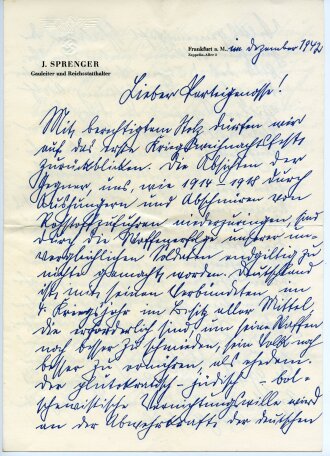 J. SPRENGER
Gauleiter und Reichsstatthalter
Frankfurt a. M., im Dezember 1942
Zeppelin-Allee
Lieber Parteigenosse!
Mit berechtigtem Stolz dürfen wir
auf das erste Kriegsweihnachtsfest
zurückblicken. Die Absichten der
Gegner, uns, wie 1914-1918 durch
Aushungern und Abschnüren von
Rohstoffzufuhren niederzuringen, sind
durch die Waffenerfolge unserer un-
vergleichlichen Soldaten endgiltig zu
nichte gemacht worden. Deutschland
ist, mit seinen Verbündeten, im
4. Kriegsjahr im Besitz aller Mittel,
die erforderlich sind, um seine Waffen
noch besser zu schmieden, sein Volk noch
besser zu ernähren, als ehedem.
Der jüdisch - bol-
schewistische Vernichtungswille wird
an der Abwehrkraft der deutschen